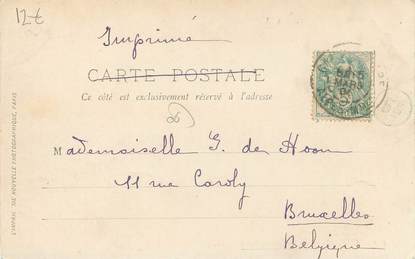 12€
Imprimé
CARTE POSTALE
Ce côté est exclusivement réservé à l'adresse
Mademoiselle G. de Hoon
11 rue Caroly
Bruxelles
Belgique
NOUVELLE PHOTOGRAPHIQUE, PARIS